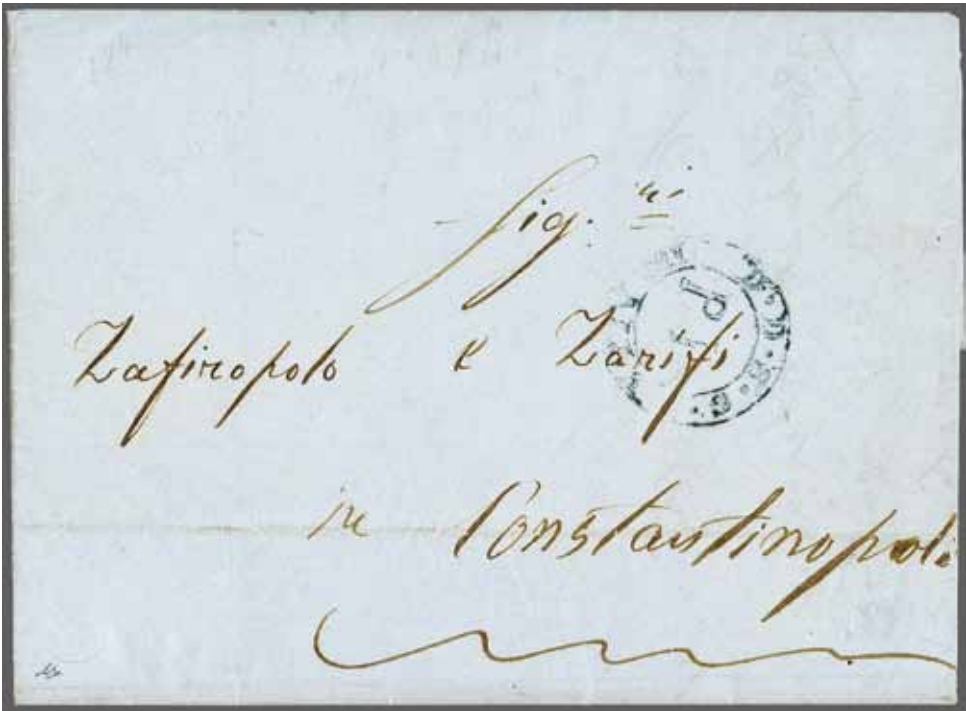 Sig.ri
Zafiropolo e Zarifi
in Constantinopoli